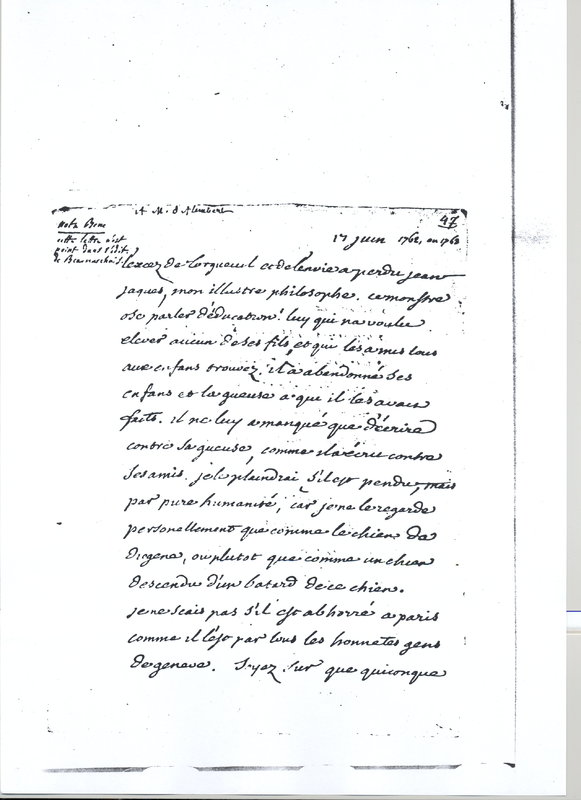 A M. d'Alembert
47
Nota Bene
cette lettre n'est
point dans l'édit.
de Beaumarchais.
17 juin 1762, ou 1763
lexcez de lorgueuil et de lenvie a perdu jean
jaques, mon illustre philosophe. ce monstre
ose parler d'éducation! luy qui na voulu
elever aucun de ses fils, et qui les a mis tous
aux enfans trouvez. il a abandonné ses
enfans et la gueuse a qui il les avait
faits. il ne luy a manqué que d'écrire
contre sa gueuse, comme il a écrit contre
ses amis. je le plaindrai s'il est pendu, mais
par pure humanité, car je ne le regarde
personellement que comme le chien de
diogene, ou plutot que comme un chien
descendu d'un batard de ce chien.
je ne scais pas s'il est abhorré a paris
comme il l'est par tous les honnetes gens
de geneve. soyez sur que quiconque